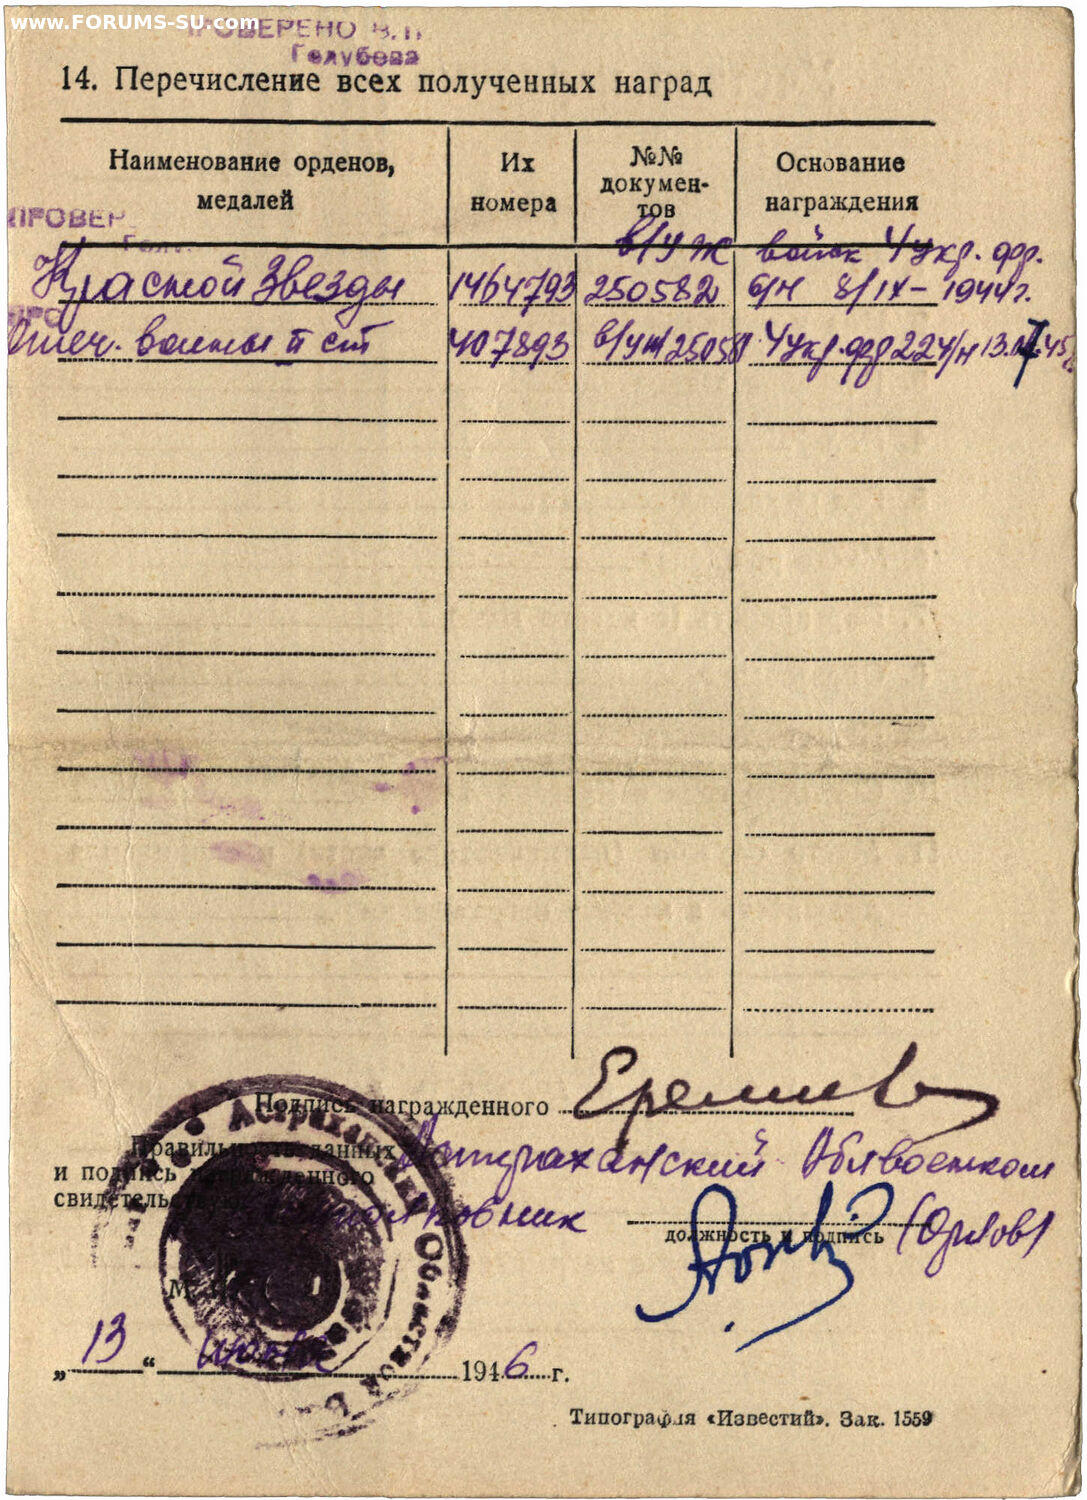 www.FORUMS-SU.com
ПРОВЕРЕНО В.П.
Голубева
14. Перечисление всех полученных наград
Наименование орденов, медалей
Их номера
№№ докумен-
тов
Основание награждения
ПРОВЕР
Голу
Красной Звезды 1464793 в/уж 250582 войск 4 укр. фр. б/н 8/IX – 1944 г.
Отеч. войны II ст 407893 4 укр. фр 224/н
Подпись награжденного Еремиев
Правильность данных
и подпись награжденного
Астраханский Облвоенком
свидетельствую
Подполковник
должность и подпись (Орлов)
М. П.
„13“ июня 1946 г.
Типография «Известий». Зак. 1559